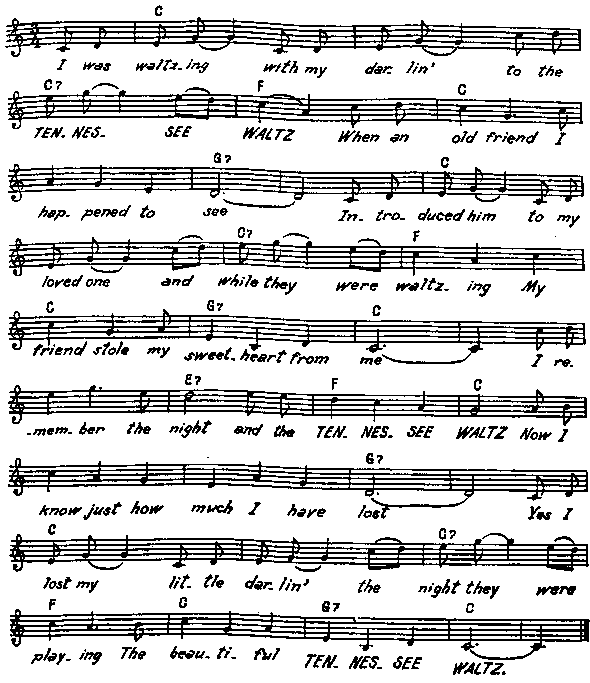 C
I was waltz-ing with my dar-lin' to the
C7 F C
TEN-NES- SEE WALTZ When an old friend I
G7 C
hap-pened to see In-tro-duced him to my
C7 F
loved one and while they were waltz-ing My
C G7 C
friend stole my sweet-heart from me I re-
E7 F C
-mem-ber the night and the TEN-NES-SEE WALTZ Now I
G7
know just how much I have lost Yes I
C C7
lost my lit-tle dar-lin' the night they were
F C G7 C
play-ing The beau-ti-ful TEN-NES-SEE WALTZ.